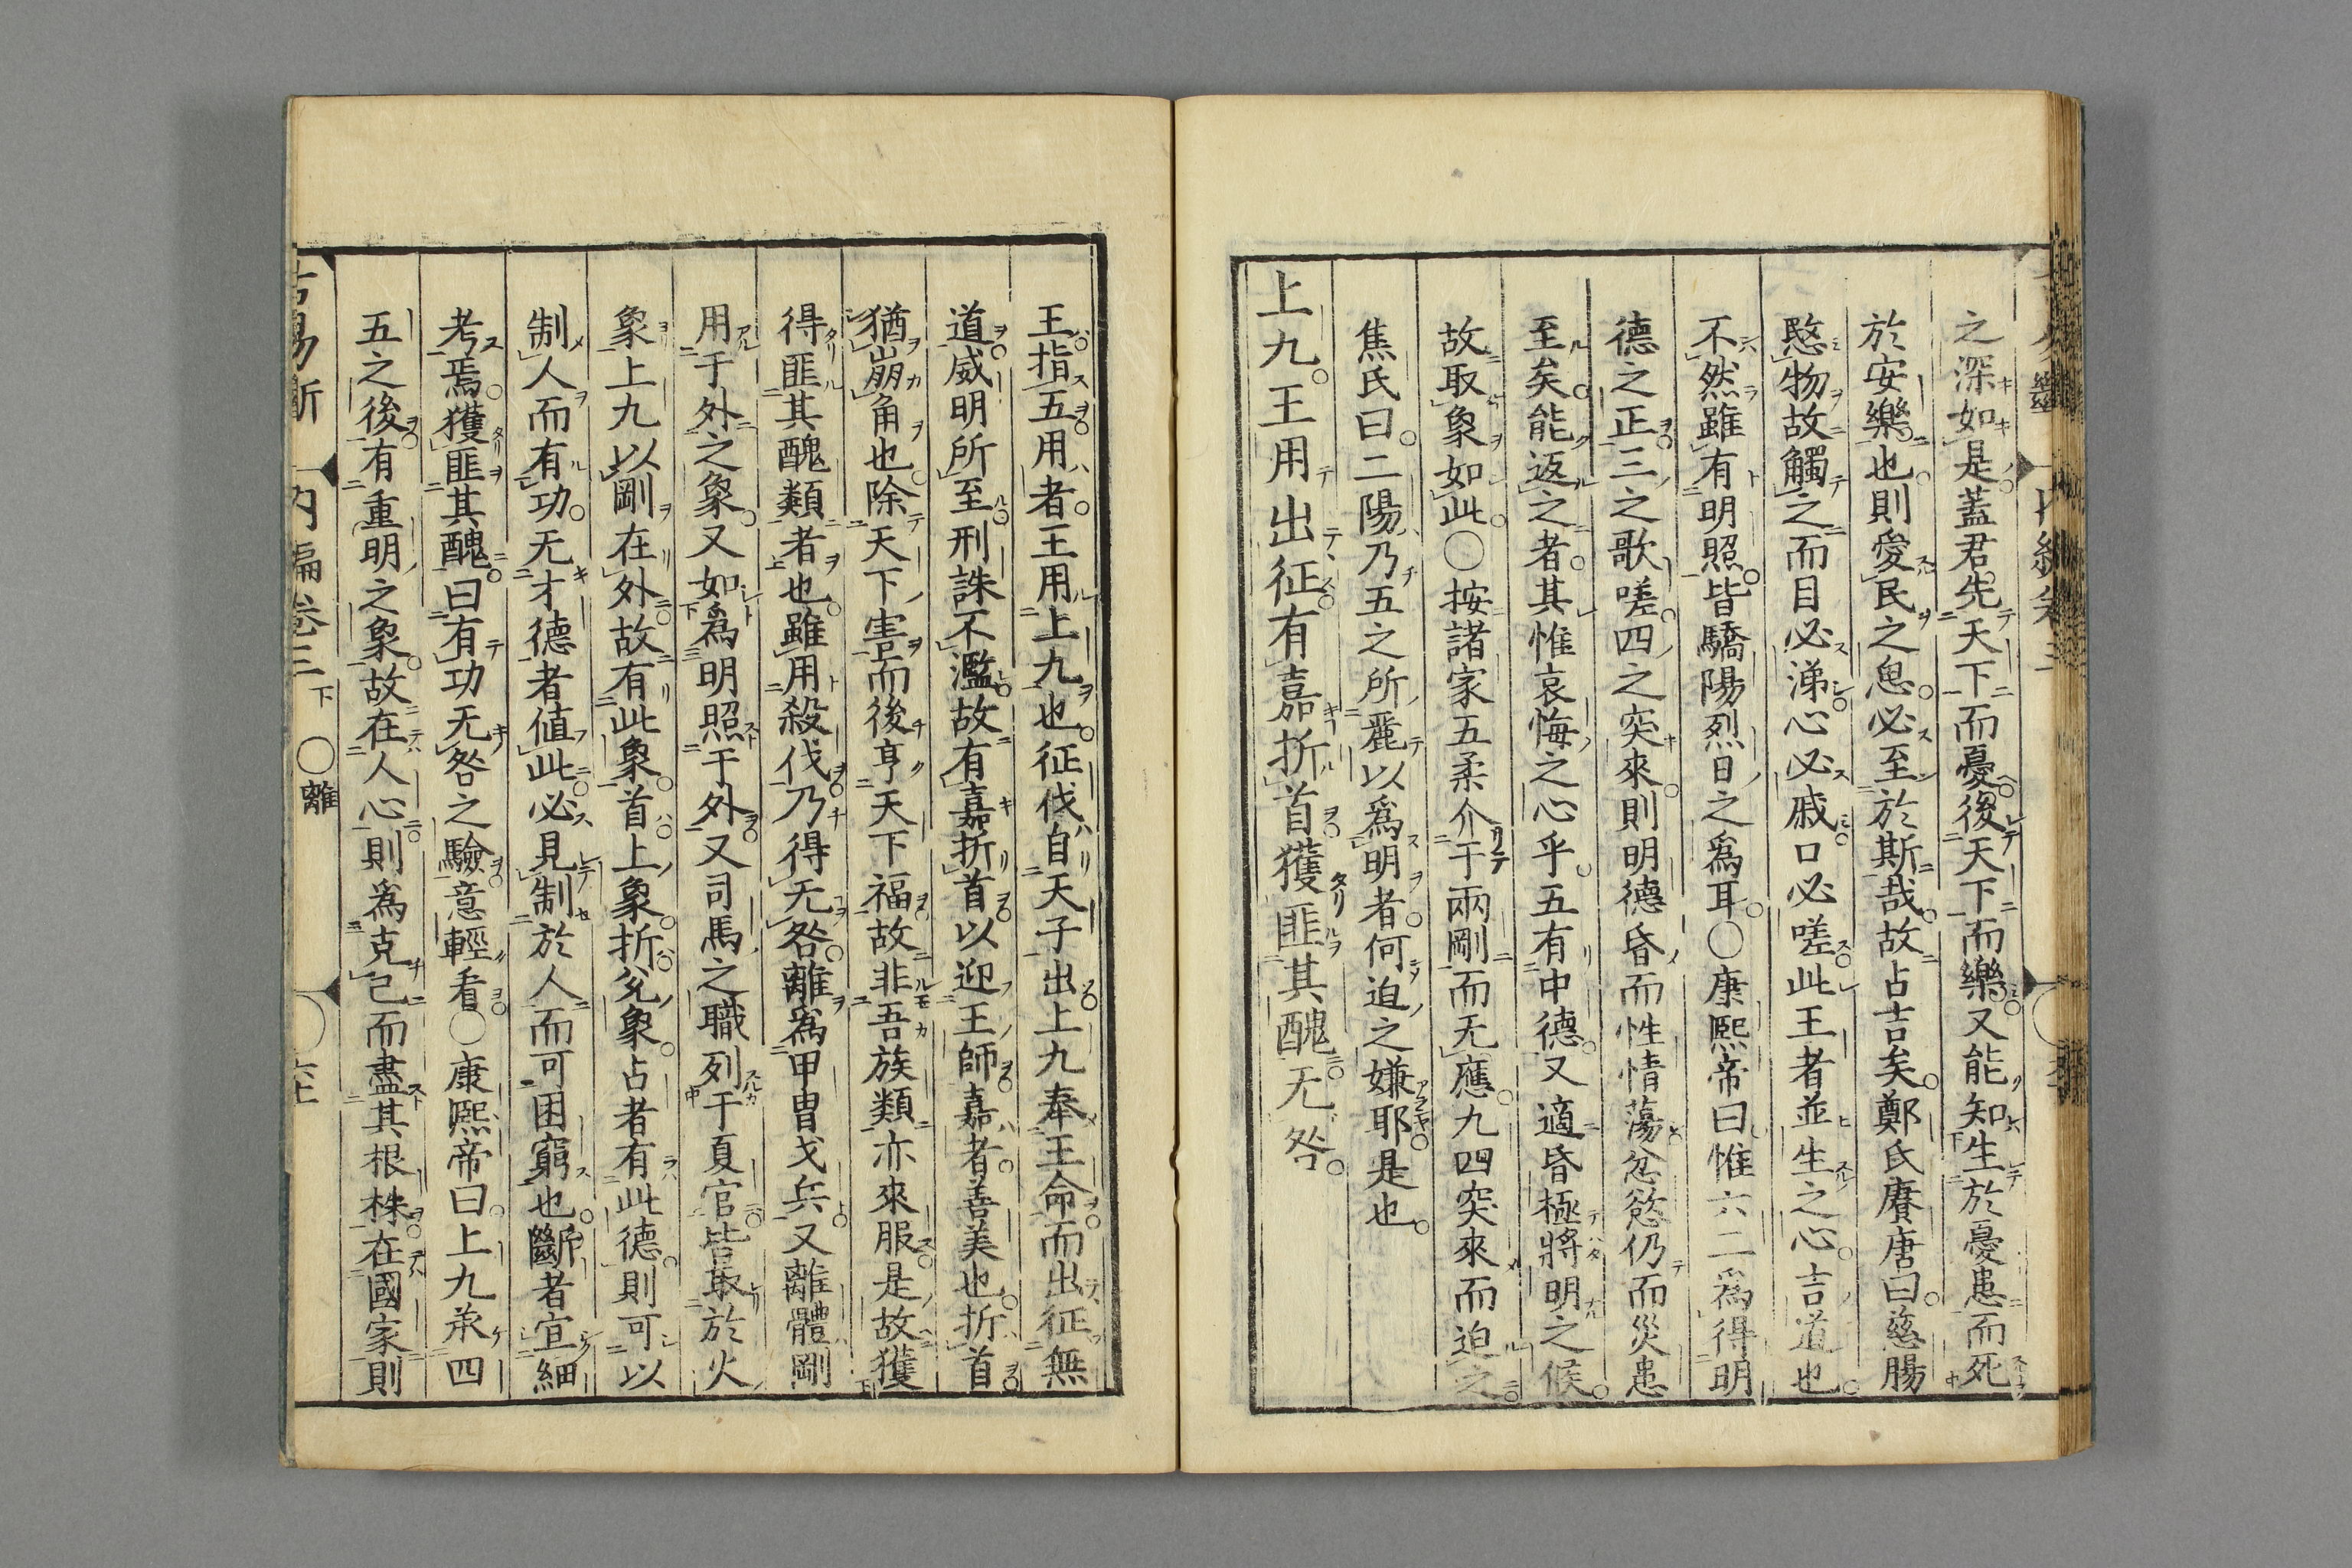 之深如是蓋君先天下而憂後天下而樂又能知生於憂患而死
於安樂也則愛民之思必至於斯哉故占吉矣鄭氏賡唐曰慈腸
愍物故觸之而目必涕心必戚口必嗟此王者並生之心吉道也
不然雖有明照皆驕陽烈日之爲耳○康熙帝曰惟六二爲得明
德之正三之歌嗟四之突來則明德昏而性情蕩忿慾仍而災患
至矣能返之者其惟哀悔之心乎五有中德又適昏極將明之候
故取象如此○按諸家五柔介于兩剛而无應九四突來而迫之
焦氏曰二陽乃五之所麗以爲明者何迫之嫌耶是也
上九王用出征有嘉折首獲匪其醜无咎
王指五用者王用上九也征伐自天子出上九奉王命而出征無
道威明所至刑誅不濫故有嘉折首以迎王師嘉者善美也折首
猶崩角也除天下害而後亨天下福故非吾族類亦來服是故獲
得匪其醜類者也雖用殺伐乃得无咎離爲甲冑戈兵又離體剛
用于外之象又如爲明照于外又司馬之職列于夏官皆取於火
象上九以剛在外故有此象首上象折兌象占者有此德則可以
制人而有功无才德者値此必見制於人而可困窮也斷者宜細
考焉獲匪其醜曰有功无咎之驗意輕看○康熙帝曰上九承四
五之後有重明之象故在人心則爲克己而盡其根株在國家則
古易斷 內編卷三下 ○離